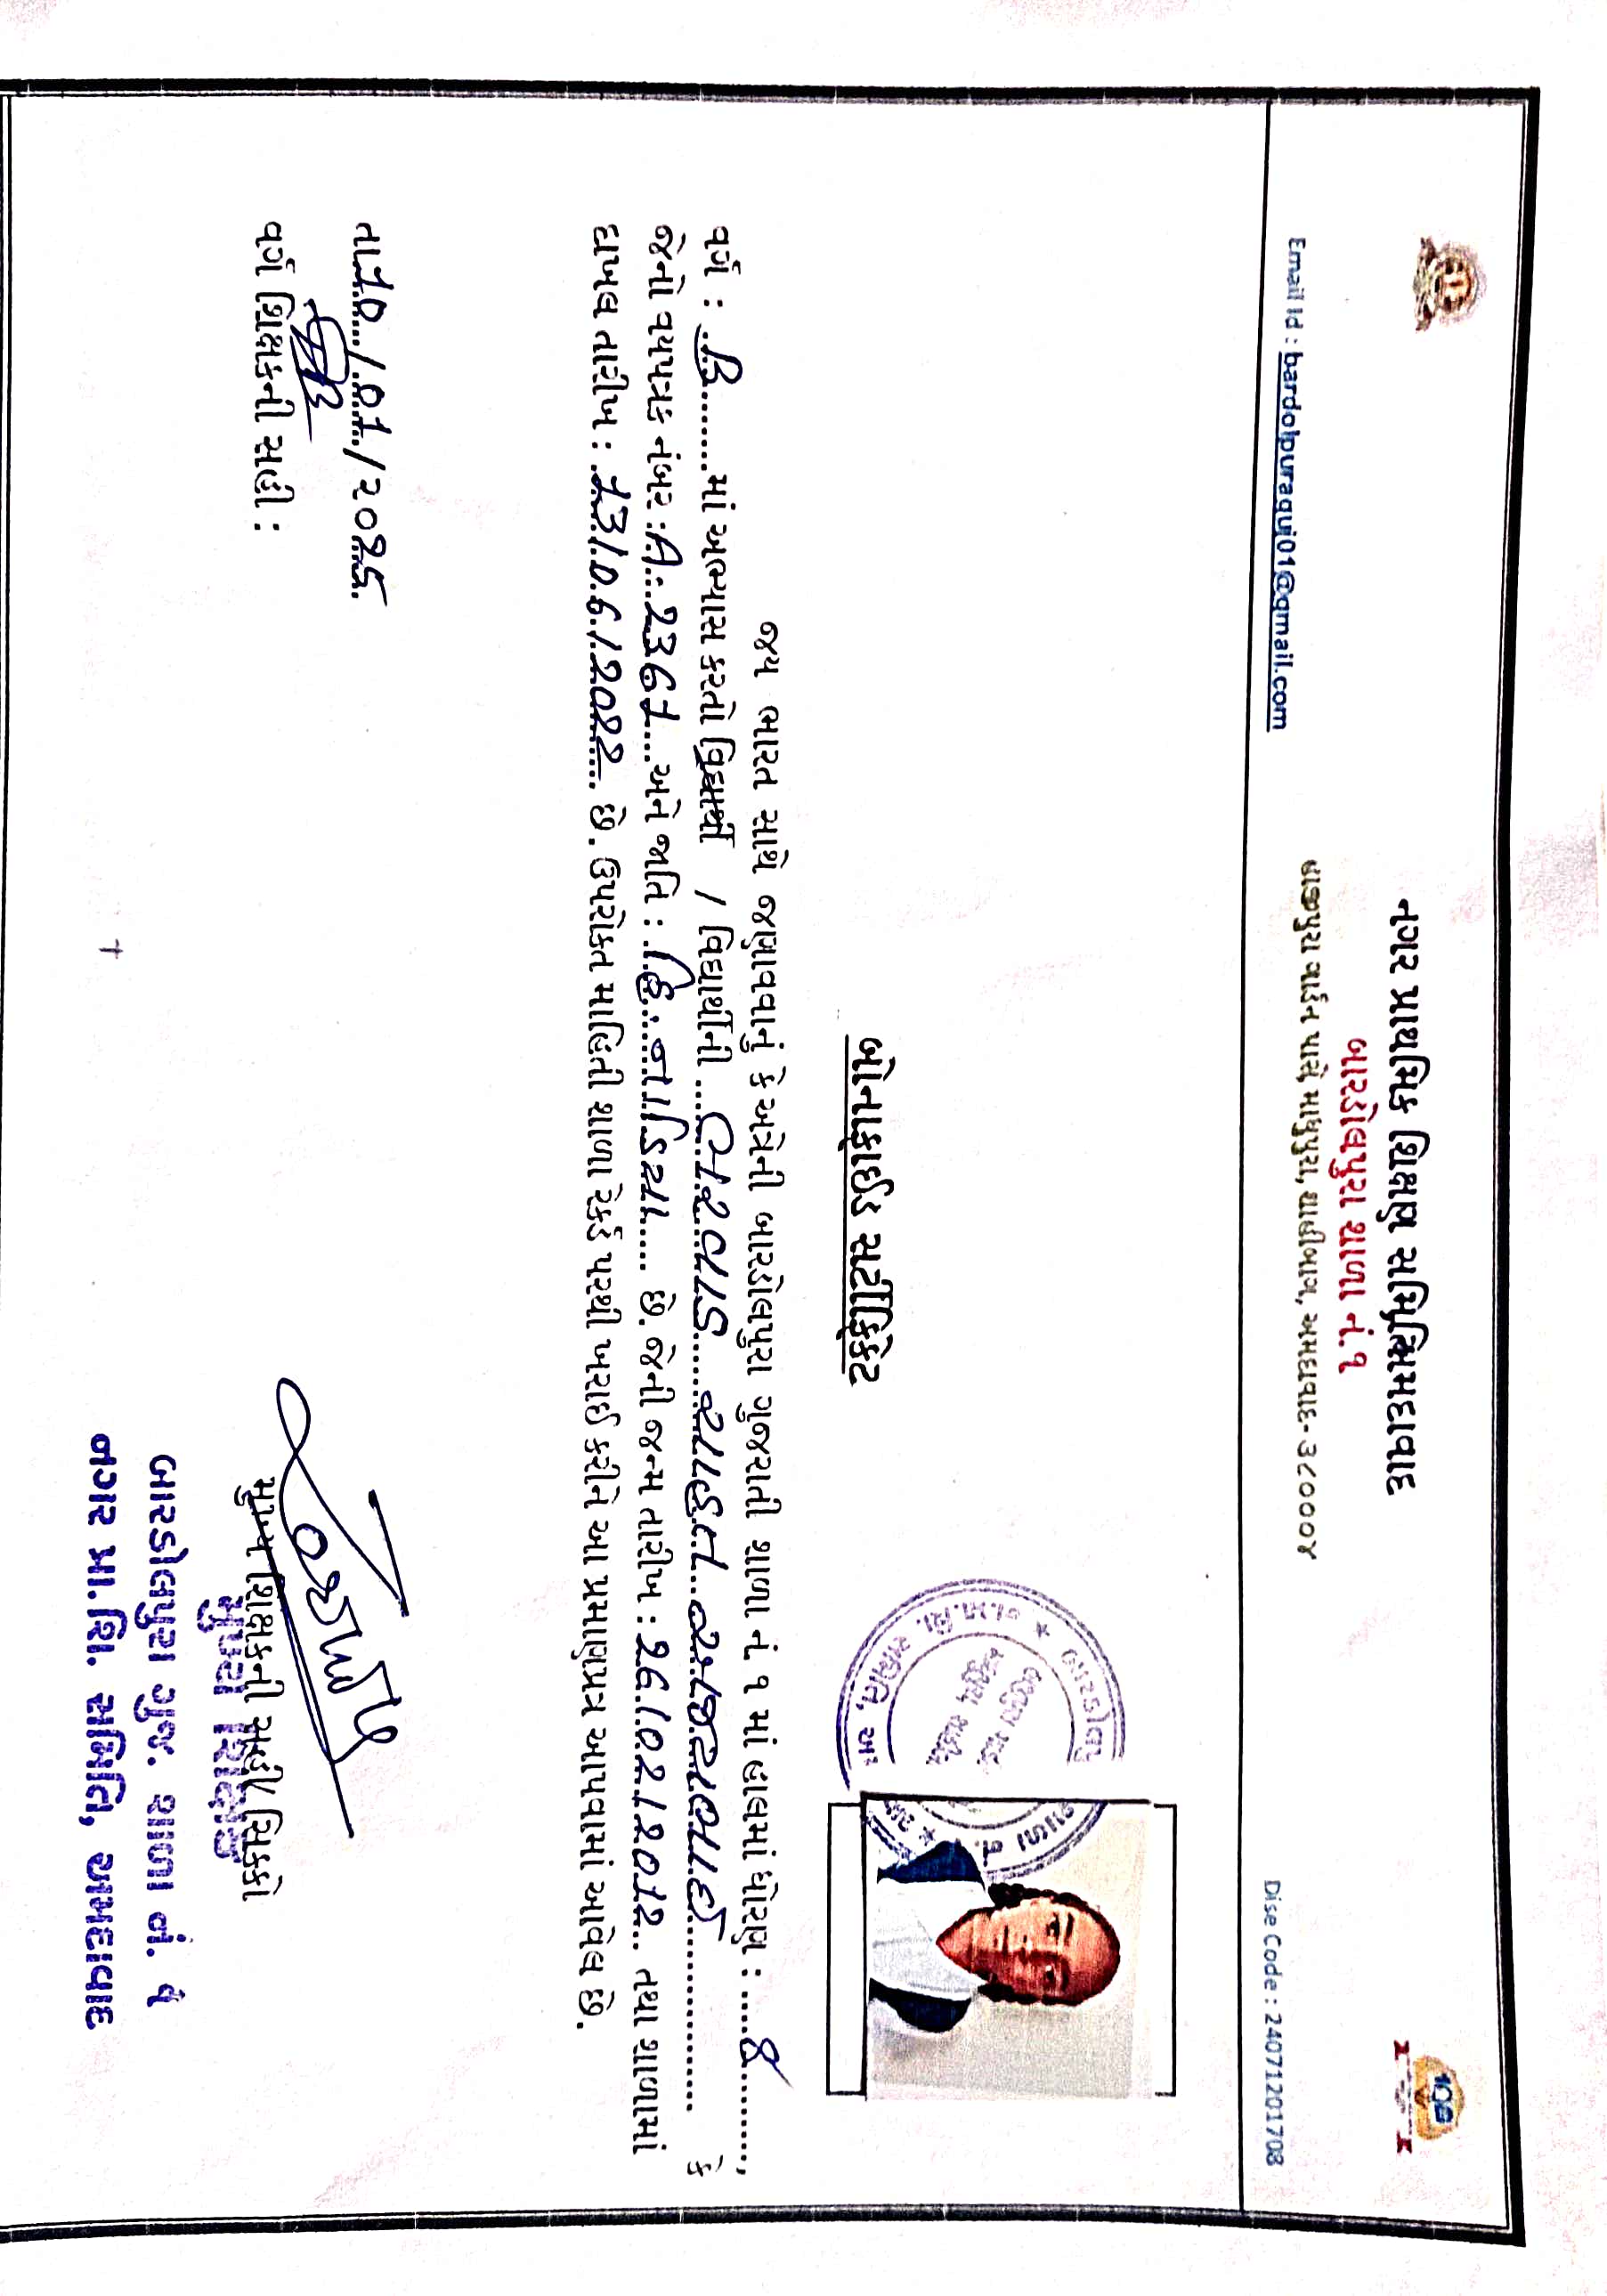 નગર પ્રાથમિક શિક્ષણ સમિતિ અમદાવાદ
બારડોલપુરા શાળા નં.૧
વાજીપુરા ગાર્ડન પાસે માધુપુરા, શાહીબાગ, અમદાવાદ-૩૮૦૦૦૪
Email Id : bardolpuraguj01@gmail.com
Dise Code : 24071201708
બોનાફાઈડ સર્ટીફિકેટ
જય ભારત સાથે જણાવવાનું કે અત્રેની બારડોલપુરા ગુજરાતી શાળા નં. ૧ માં હાલમાં ધોરણ : 8,
વર્ગ : B માં અભ્યાસ કરતો વિદ્યાર્થી / વિદ્યાર્થીની સરવાડ સાહત કે
જેનો વયપત્રક નંબર : A. 2361 અને જાતિ : હિ. વાદિયા છે. જેની જન્મ તારીખ : 26/02/2012 તથા શાળામાં
દાખલ તારીખ : 13/06/2022 છે. ઉપરોક્ત માહિતી શાળા રેકર્ડ પરથી ખરાઈ કરીને આ પ્રમાણપત્ર આપવામાં આવેલ છે.
તા 10/01/૨૦25
વર્ગ શિક્ષકની સહી :
મુખ્ય શિક્ષકની સહી/ સિક્કો
મુખ્ય શિક્ષક
બારડોલપુરા ગુજ. શાળા નં. ૧
નગર પ્રા.શિ. સમિતિ, અમદાવાદ